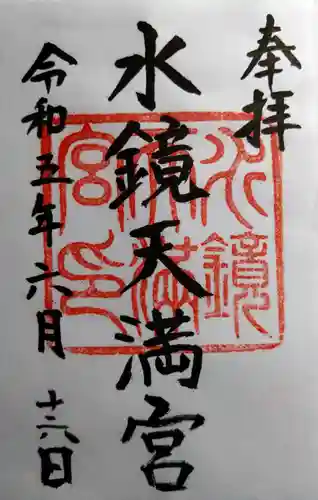 奉拝
水鏡天満宮
令和五年六月十六日
水鏡
天満
宮印